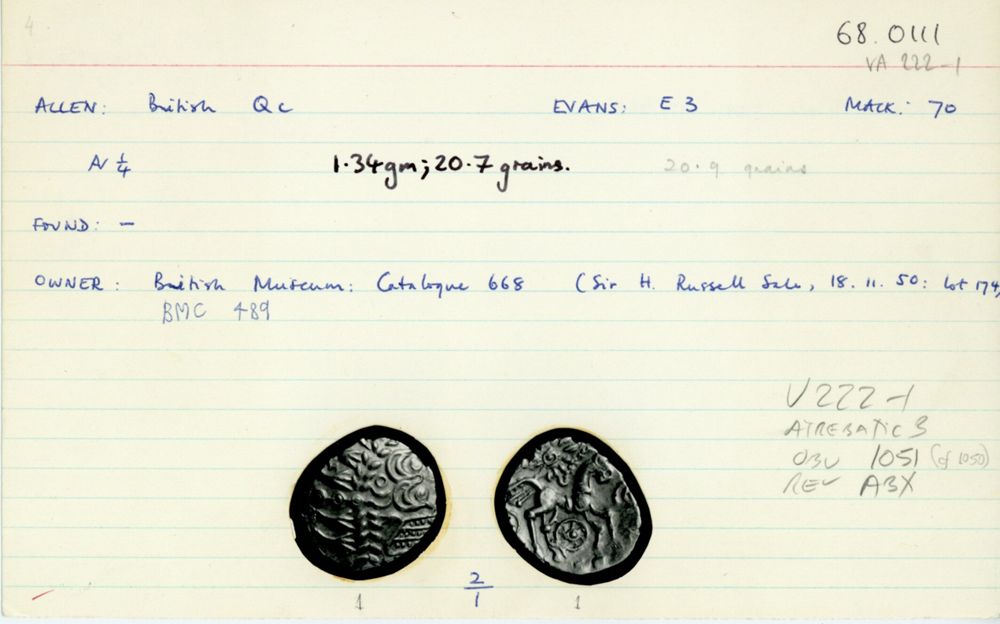 4
68.0111
VA 222-1
ALLEN: British Qc EVANS: E 3 MACK: 70
AV 1/4 1.34gm; 20.7 grains. 20.9 grains
FOUND: —
OWNER: British Museum: Catalogue 668 (Sir H. Russell Sale, 18.11.50: lot 174)
BMC 489
V222-1
ATREBATIC 3
OBV 1051 (cf 1050)
REV ABX
2/1
1 1